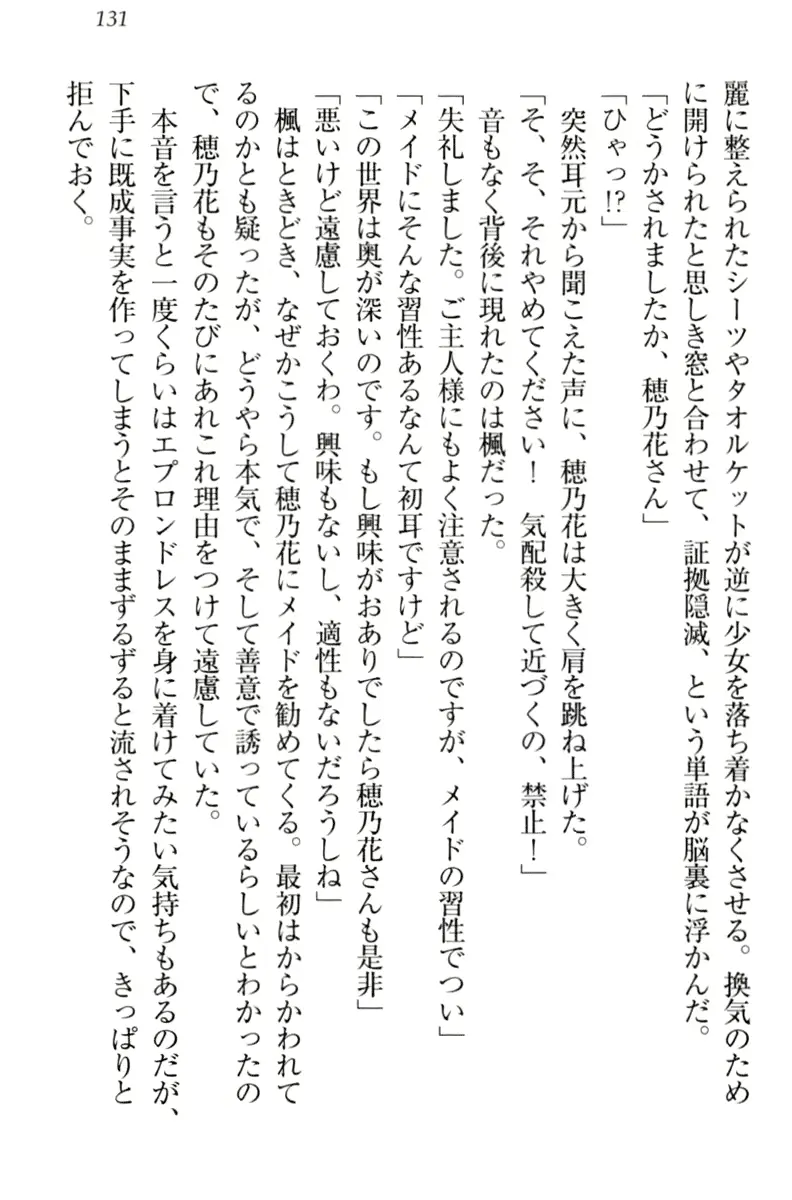 131
麗に整えられたシーツやタオルケットが逆に少女を落ち着かなくさせる。換気のため
に開けられたと思しき窓と合わせて、証拠隠滅、という単語が脳裏に浮かんだ。
「どうかされましたか、穂乃花さん」
「ひゃっ!?」
突然耳元から聞こえた声に、穂乃花は大きく肩を跳ね上げた。
「そ、そ、それやめてください！　気配殺して近づくの、禁止！」
音もなく背後に現れたのは楓だった。
「失礼しました。ご主人様にもよく注意されるのですが、メイドの習性でつい」
「メイドにそんな習性あるなんて初耳ですけど」
「この世界は奥が深いのです。もし興味がおありでしたら穂乃花さんも是非」
「悪いけど遠慮しておくわ。興味もないし、適性もないだろうしね」
楓はときどき、なぜかこうして穂乃花にメイドを勧めてくる。最初はからかわれて
るのかとも疑ったが、どうやら本気で、そして善意で誘っているらしいとわかったの
で、穂乃花もそのたびにあれこれ理由をつけて遠慮していた。
本音を言うと一度くらいはエプロンドレスを身に着けてみたい気持ちもあるのだが、
下手に既成事実を作ってしまうとそのままずるずると流されそうなので、きっぱりと
拒んでおく。